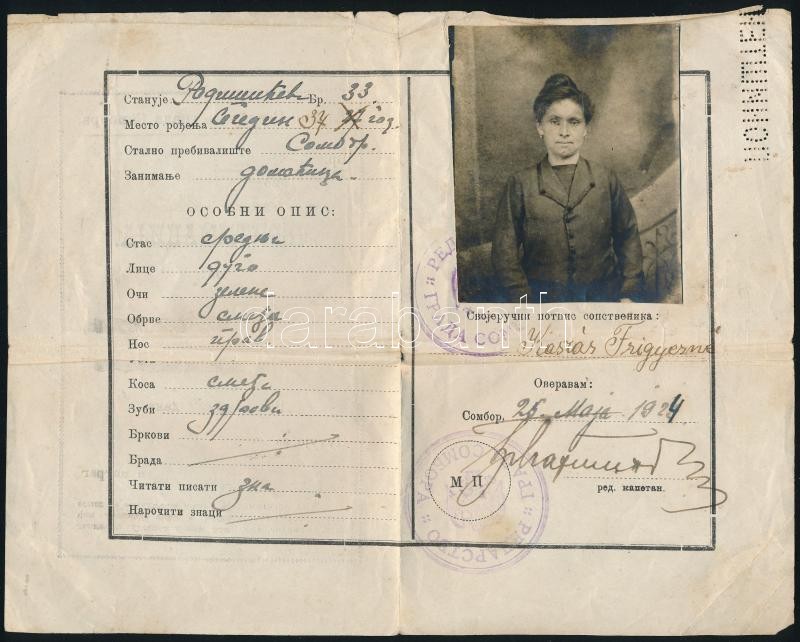 Станује Бр. 33
Место рођења 34 год.
Стално пребивалиште Сомбор.
Занимање домаћица.
ОСОБНИ ОПИС:
Стас средњи
Лице дуго
Очи зелене
Обрве смеђа
Нос прав
Коса смеђа
Зуби здрави
Бркови
Брада
Читати писати зна
Нарочити знаци
Својеручни потпис сопственика:
Kaszás Frigyesné
Оверавам:
Сомбор, 26 Маја 1924
М П
ред. капетан.
РЕДАРСТВО
darabanth.com